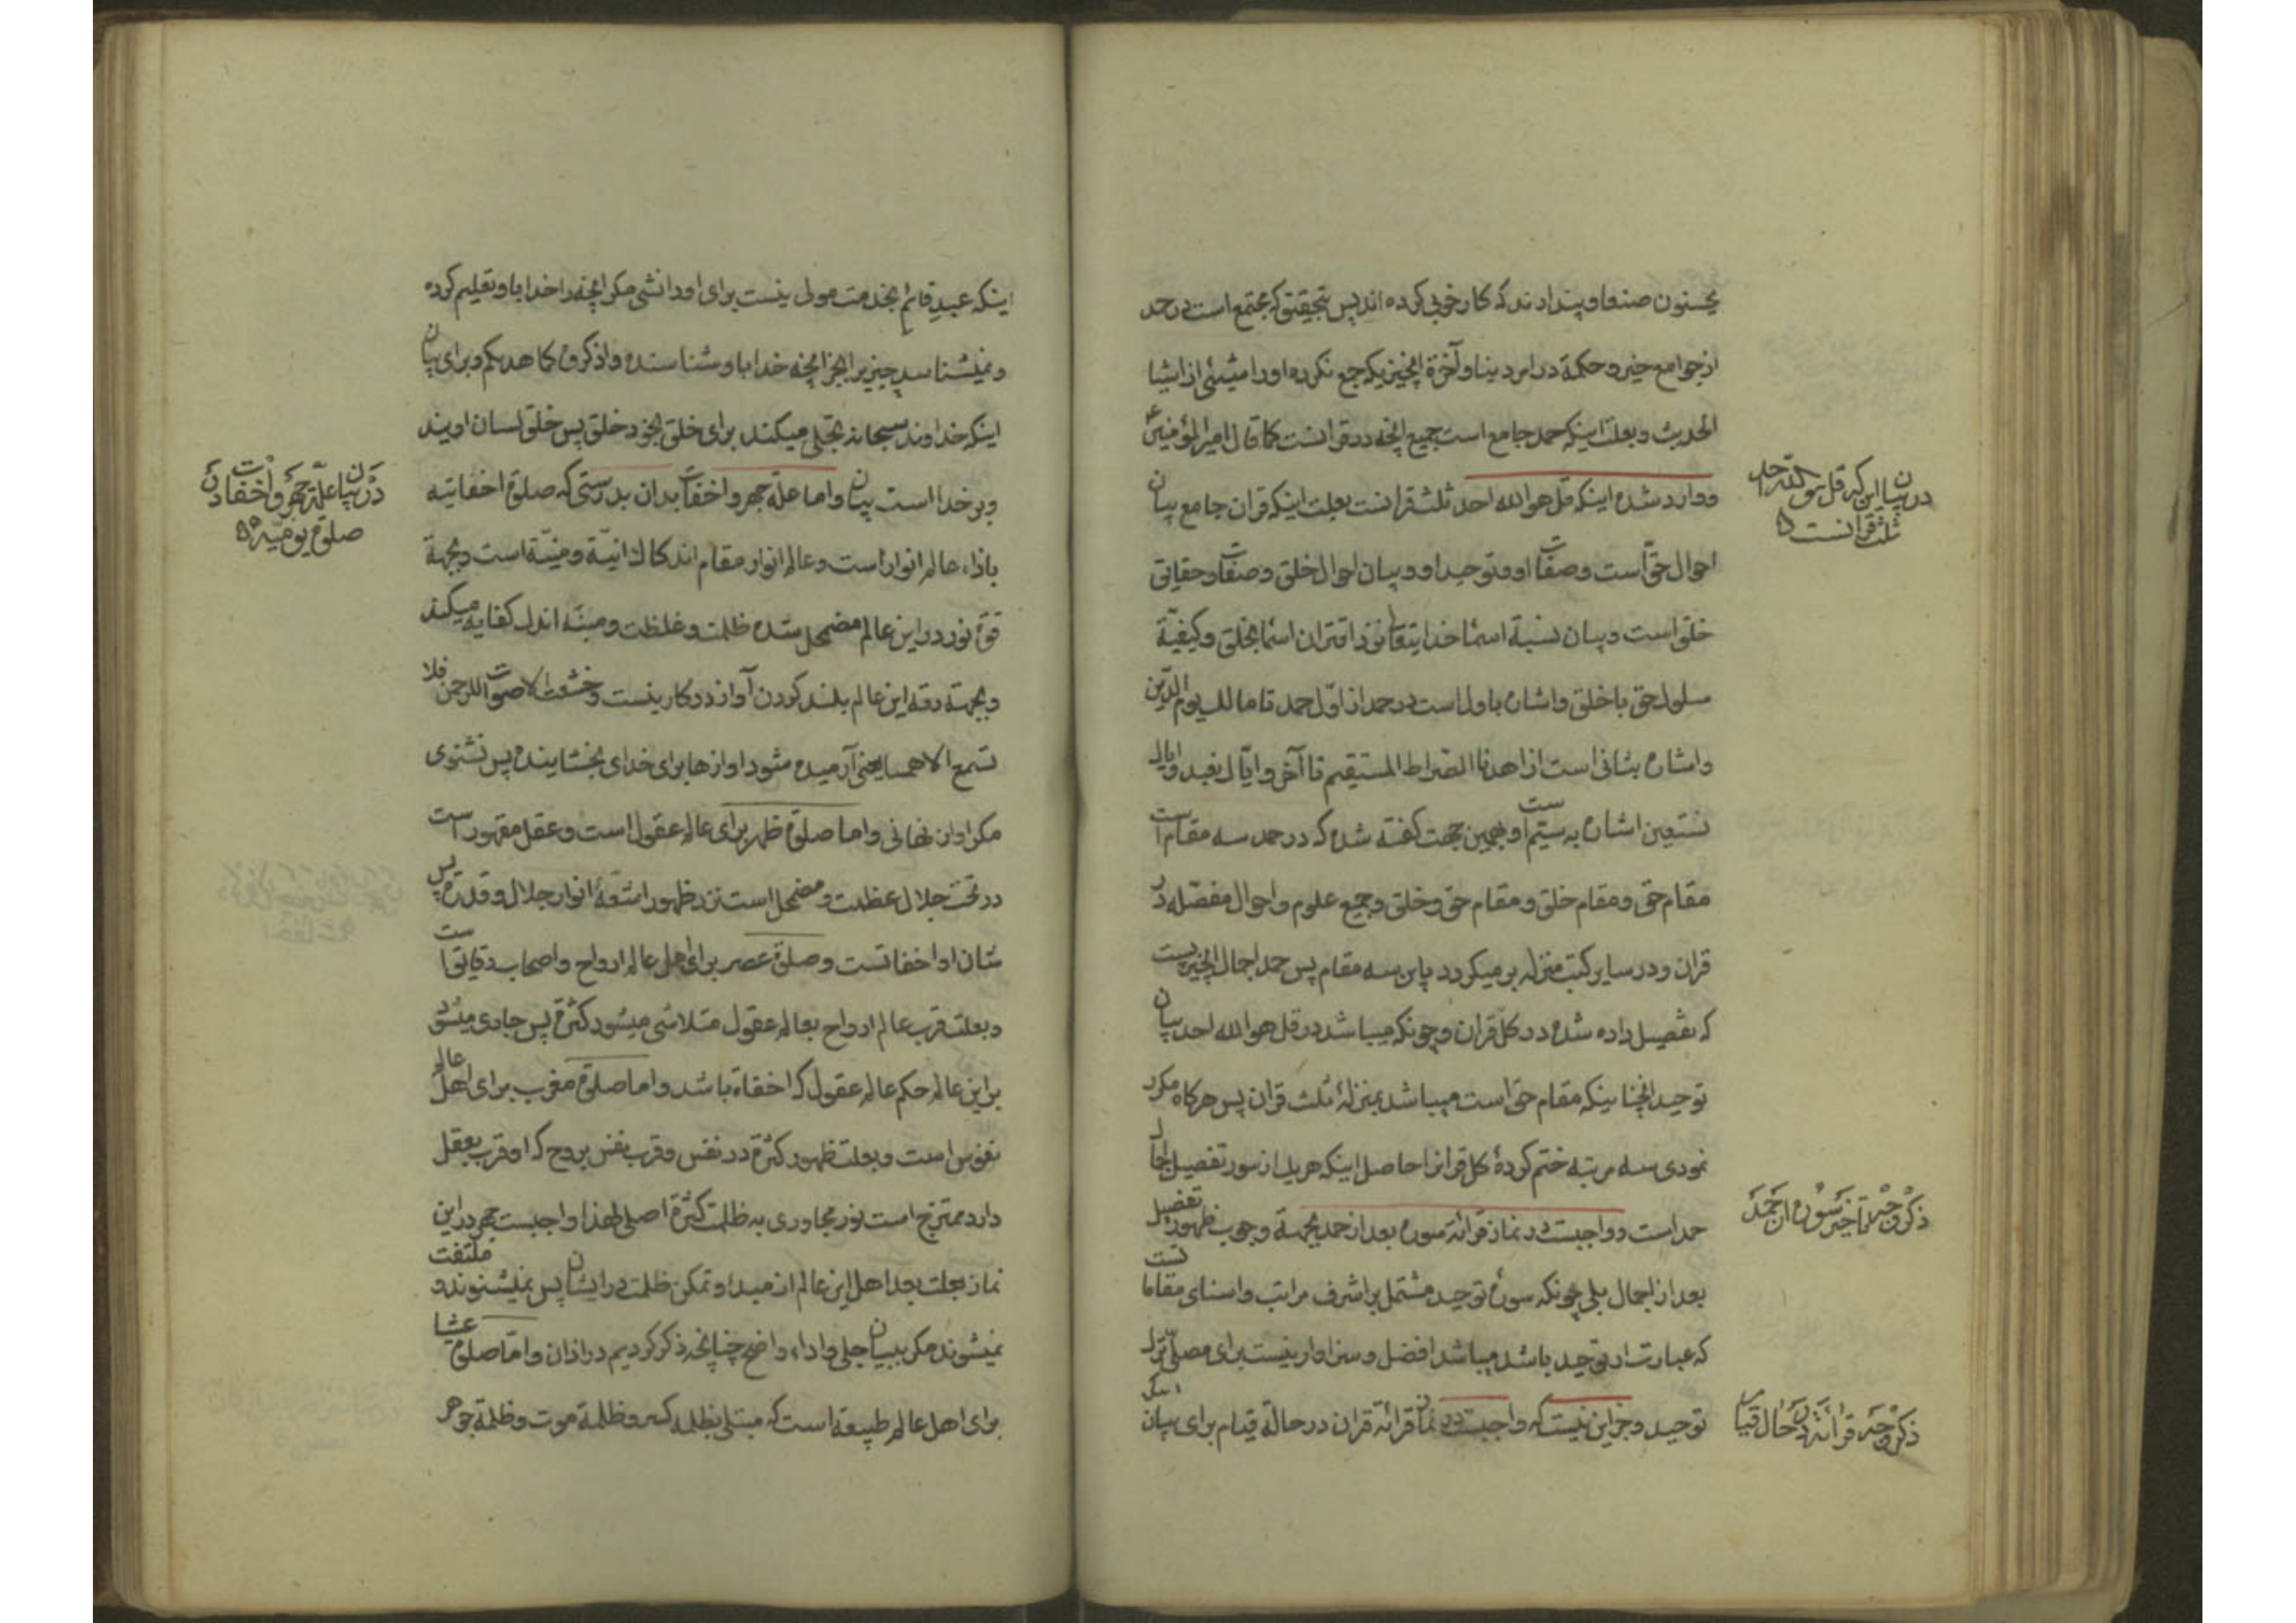 یحسنون صنعا و پندارند که کار خوبی کرده اند پس بتحقیق که مجتمع است در حمد
از جوامع خیر و حکمة در امر دنیا و آخرة انچیزیکه جمع نکرده او را شیئی از اشیا
الحدیث و بعلت اینکه حمد جامع است جمیع انچه در قرانست کما قال امیر المؤمنین ع
و وارد شده اینکه قل هو الله احد ثلث قرانست بعلت اینکه قران جامع بیان
در بیان این که قل هو الله احد
ثلث قرآنست
احوال حق است و صفات او و توحید او و بیان احوال خلق و صفات و حقایق
خلق است و بیان نسبة اسماء خدایتعالی نزد اقتران اسما بخلق و کیفیّة
سلوک حق با خلق و اشاره باول است در حمد از اوّل حمد تا مالک یوم الدّین
و اشاره بثانی است از اهدنا الصّراط المستقیم تا آخر و ایّاک نعبد و ایاک
نستعین اشاره به سیّم است و بهمین جهت کفته شده که در حمد سه مقام است
مقام حق و مقام خلق و مقام حق و خلق و جمیع علوم و احوال مفصّله در
قران و در سایر کتب منزله بر میکردد باین سه مقام پس حمد اجمال انچیزیست
که تفصیل داده شده در کلّ قران و چونکه میباشد در قل هو الله احد بیان
توحید انچنانیکه مقام حق است میباشد بمنزلهٔ ثلث قران پس هرکاه مکرر
نمودی سه مرتبه ختم کردهٔ کل قرانرا حاصل اینکه هریک از سور تفصیل اجمال
حمد است و واجبست در نماز قرائة سوره بعد از حمد بجهة وجوب ظهور تفصیل
ذکر وجه تاخیر سوره از حمد
بعد از اجمال بلی چونکه سورهٔ توحید مشتمل بر اشرف مراتب و اسنای مقاماتست
که عبارت از توحید باشد میباشد افضل و سزاوار نیست برای مصلّی ترک
توحید و جز این نیست که واجبست در نماز قرائة قران در حالة قیام برای بیان
ذکر وجه قرائة در حال قیام
اینکه عبدِ قائمِ بخدمت مولی نیست برای او دانشی مکر انچه را خدا باو تعلیم کرده
و نمیشناسد چیزیرا بجز انچه خدا باو شناسنده و اذکروه کما هدیکم و برای بیان
اینکه خداوند سبحانه تجلی میکند برای خلق بخود خلق پس خلق لسان اویند
و بر خدا است بیان و اما علّه جهر و اخفات بدان بدرستی که صلوة اخفاتیه
در بیان علّة جهر و اخفات در
صلوة یومیّه
باذاء عالم انوار است و عالم انوار مقام اندکاک انیّة و منیّة است و بجهة
قوّة نور در این عالم مضمحل شده ظلمت و غلظت و مبنّه اندک کفایه میکند
و بجهة دقه این عالم بلند کردن آواز در کار نیست و خشعت الاصوات للرحمن فلا
تسمع الا همسا یعنی آرمیده شود اوازها برای خدای بخشاینده پس نشنوی
مکر اواز نهانی و اما صلوة ظهر برای عالم عقول است و عقل مقهور است
در تحت جلال عظمت و مضمحل است نزد ظهور اشعّهٔ انوار جلال و قدرة پس
شان او اخفاتست و صلوة عصر برای اهل عالم ارواح و اصحاب دقایق است
و بعلت قرب عالم ارواح بعالم عقول متلاشی میشود کثرة پس جاری میشود
بر این عالم حکم عالم عقول که اخفاة باشد و اما صلوة مغرب برای اهل عالم
نفوس است و بعلت ظهور کثرة در نفس و قرب نفس بروح که او قرب بعقل
دارد ممتزج است نور مجاوری به ظلمت کثرة اصلی لهذا واجبست جهر در این
نماز بعلت بعد اهل این عالم از مبدا و تمکن ظلمت در ایشان پس نمیشنوند و ملتفت
نمیشوند مکر ببیان جلی و اداء واضح چنانچه ذکر کردیم در اذان و امّا صلوة عشا
برای اهل عالم طبیعة است که مبتلی بظلمه کسر و ظلمة موت و ظلمة جوهر